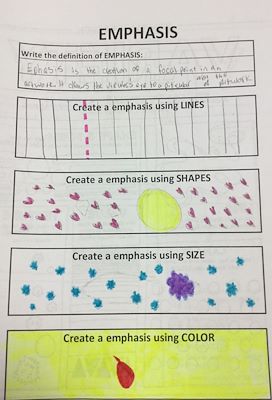 EMPHASIS
Write the definition of EMPHASIS:
Ephasis is the creation of a focal point in an
artwork. It draws the viewers eye to a particular way the of artwork
Create a emphasis using LINES
Create a emphasis using SHAPES
Create a emphasis using SIZE
Create a emphasis using COLOR